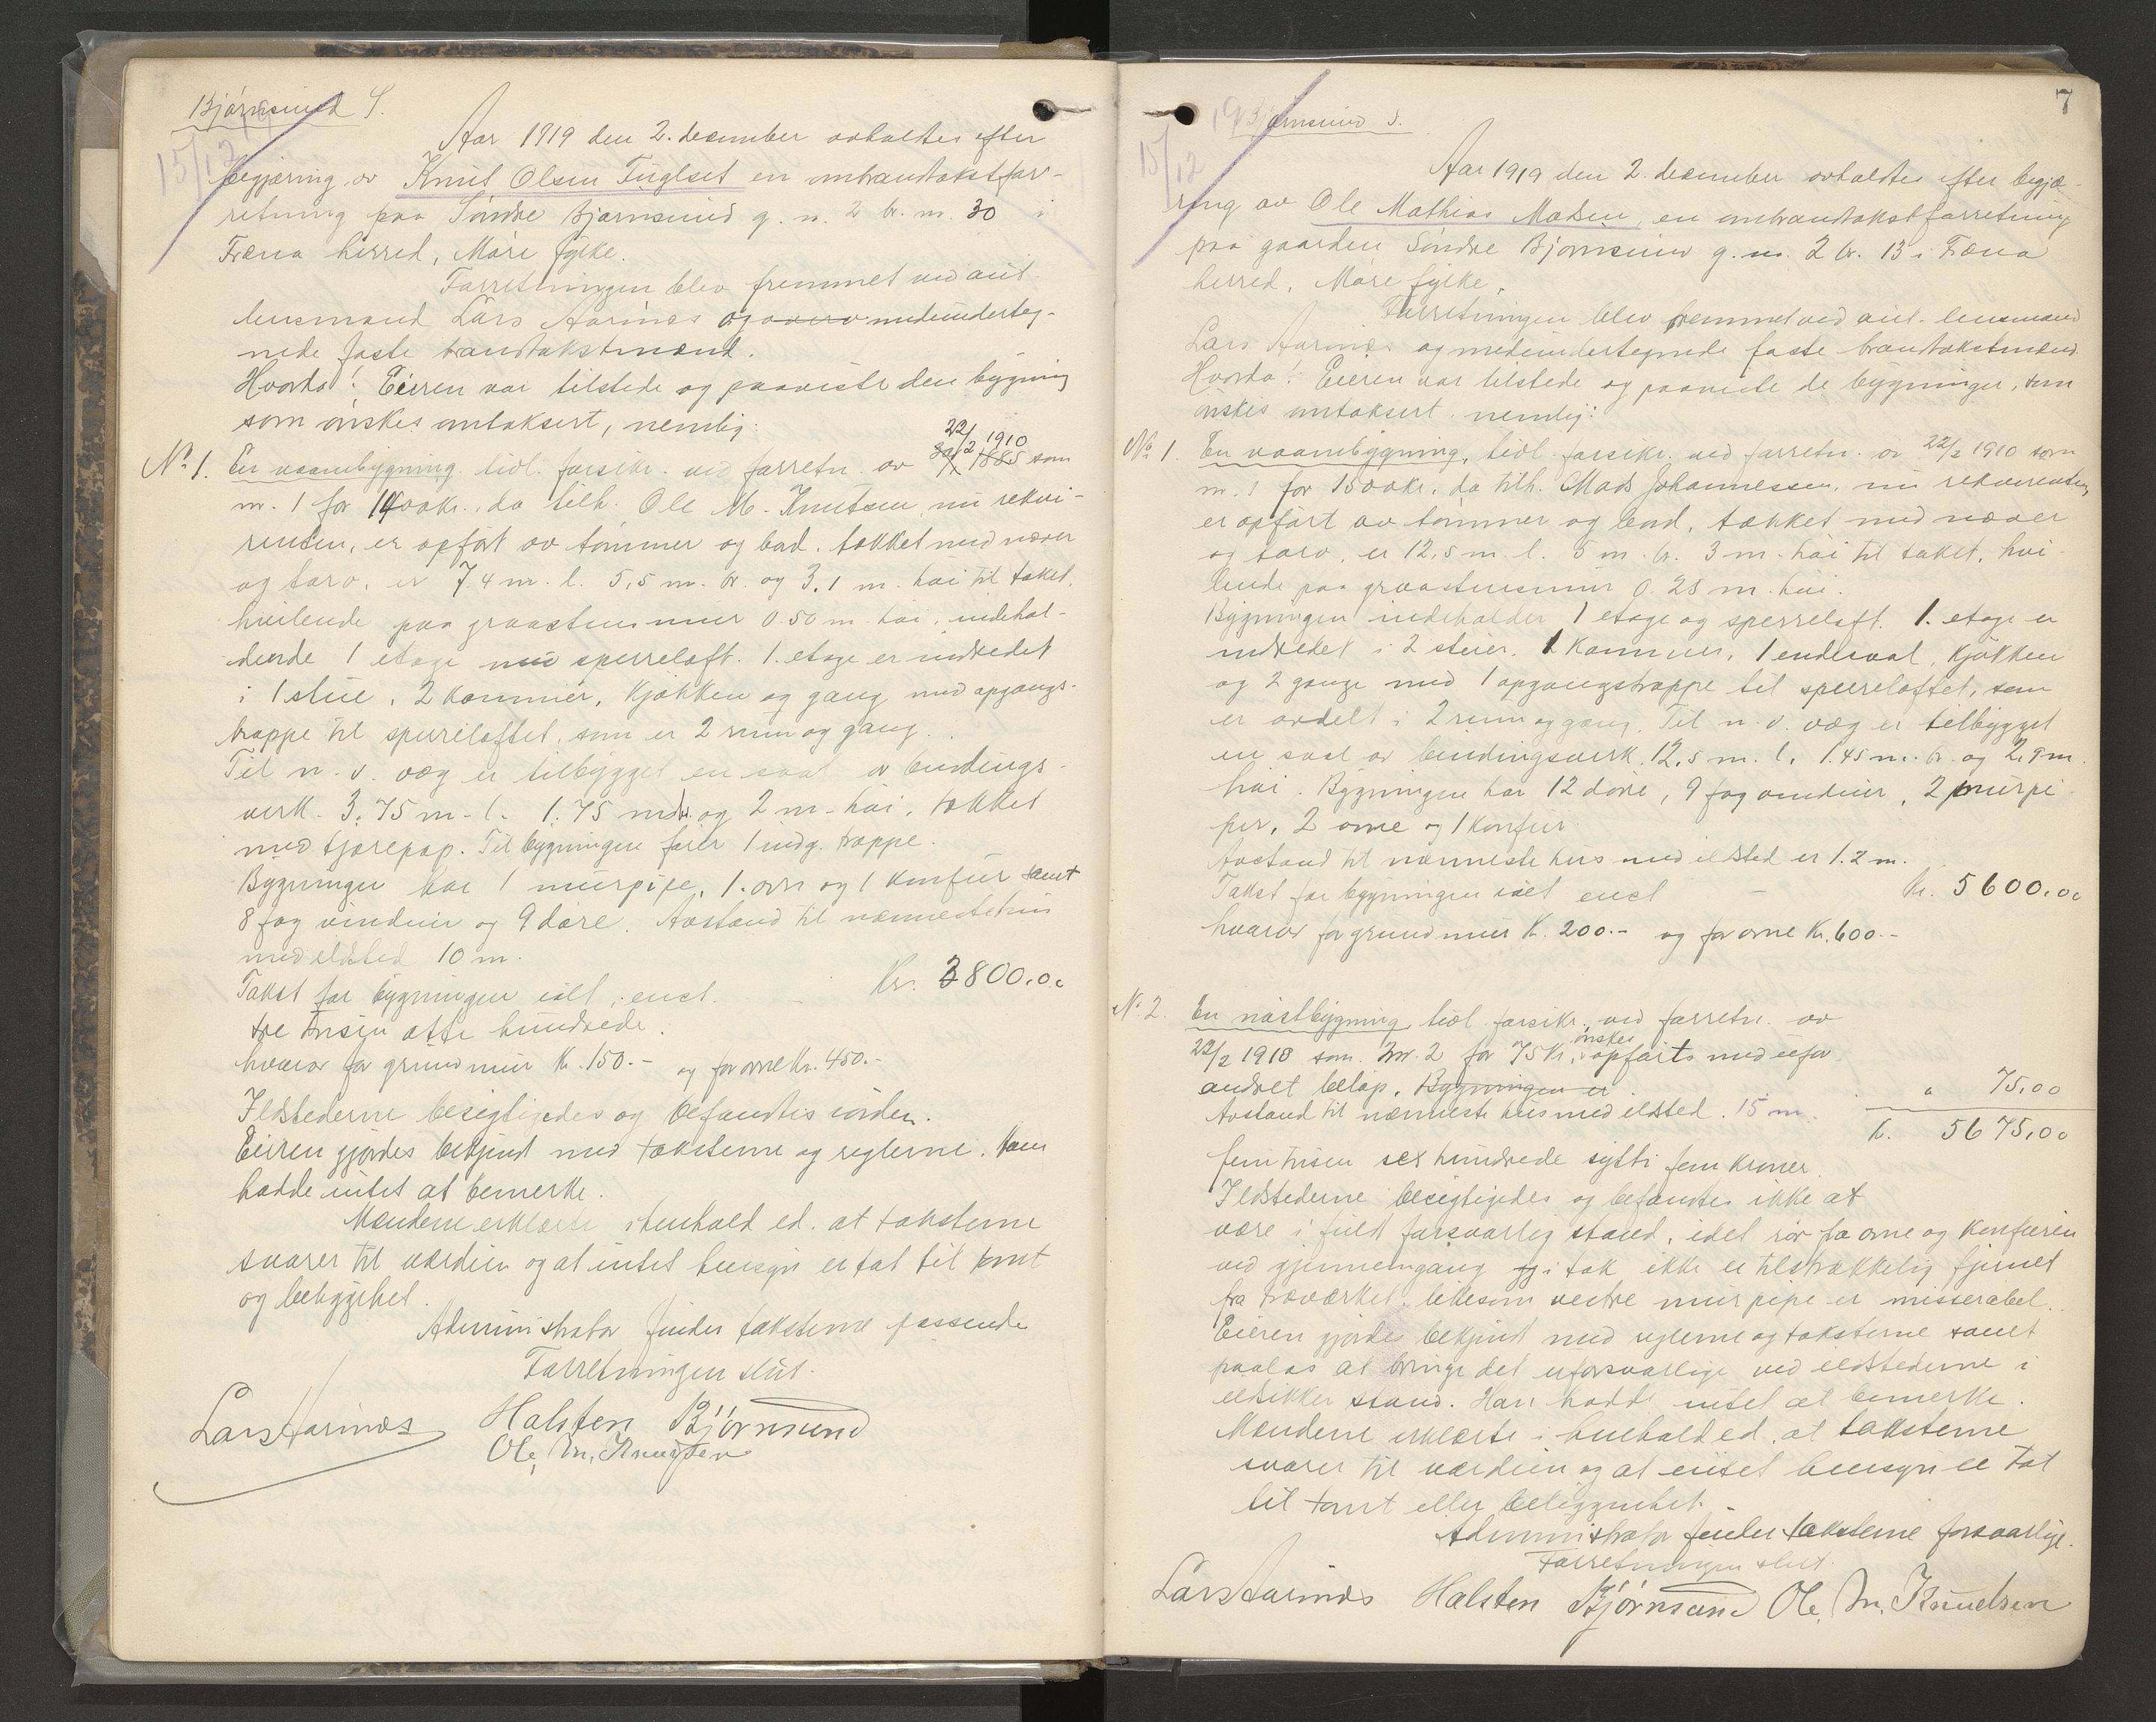 Bjørnsund S.
15/12
Aar 1919 den 2. december avholdtes efter
begjæring av Knut Olsen Fuglset en ombrandtakstfor-
retning paa Søndre Bjørnsund g. n. 2 br. n. 30 i
Fræna herred, Møre fylke.
Forretningen blev fremmet ved aut.
lensmand Lars Aarnæs og medunderteg-
nede faste brandtakstmænd.
Hvorda! Eieren var tilstede og paaviste den bygning
som ønskes omtaksert, nemlig:
22/2 1910
No 1. En vaanbygning tidl. forsikr. ved forretn. av 1885 som
nr. 1 for 1400 kr., da tilh. Ole M. Knutsen, nu rekvi-
renten, er opført av tømmer og bord, tækket med næver
og torv, er 7.4 m. l. 5,5 m. br. og 3,1 m. høi til taket,
hvilende paa graastensmur 0.50 m. høi, indehol-
dende 1 etage sperreloft. 1. etage er indredet
i 1 stue, 2 kammer, kjøkken og gang med opgangs-
trappe til sperreloftet, som er 2 rum og gang.
Til n. v. væg er tilbygget en sval av bindings-
verk 3.75 m. l. 1.75 m br. og 2 m. høi, tækket
med tjærepap. Til bygningen fører 1 indg. trappe.
Bygningen har 1 murpipe, 1. ovn og 1 komfur samt
8 fag vinduer og 9 døre. Avstand til nærmeste hus
med ildsted 10 m.
Takst for bygningen ialt, enst. Kr. 3800.00
tre tusen otte hundrede.
hvorav for grundmur Kr. 150.- og for ovne Kr. 450.-
Ildstederne besigtigedes og befandtes iorden.
Eieren gjordes bekjendt med taksterne og reglerne. Han
hadde intet at bemerke.
Mændene erklærte i henhold ed. at taksterne
svarer til værdien og at intet hensyn er tat til tomt
og beliggenhet.
Administrator finder taksterne passende
Forretningen slut.
Lars Aarnæs Halsten Bjørnsund
Ole M. Knutsen
7
Bjørnsund S.
15/12
Aar 1919 den 2. december avholdtes efter begjæ-
ring av Ole Mathias Madsen, en ombrandtakstforretning
paa gaarden Søndre Bjørnsund g. nr. 2 br. 13 i Fræna
herred, Møre fylke.
Forretningen blev fremmet ved aut. lensmand
Lars Aarnæs og medundertegnede faste brandtakstmænd.
Hvorda! Eieren var tilstede og paaviste de bygninger, som
ønskes omtaksert, nemlig:
No 1. En vaanbygning, tidl. forsikr. ved forretn. av 22/2 1910 som
nr. 1 for 1500 kr. da tilh. Mads Johannessen, nu rekvirenten,
er opført av tømmer og bord, tækket med næver
og torv, er 12,5 m. l. 5 m. br. 3 m. høi til taket, hvi-
lende paa graastensmur 0.25 m. høi.
Bygningen indeholder 1 etage og sperreloft. 1. etage er
indredet i 2 stuer, 1 kammer, 1 endesval, kjøkken
og 2 gange med 1 opgangstrappe til sperreloftet, som
er avdelt i 2 rum og gang. Til n. v. væg er tilbygget
en sval av bindingsverk 12,5 m. l. 1.45 m. br. og 2,9 m.
høi. Bygningen har 12 døre, 9 fag vinduer, 2 murpi-
per, 2 ovne og 1 komfur.
Avstand til nærmeste hus med ildsted er 1.2 m.
Takst for bygningen ialt enst - Kr. 5600.00
hvorav for grundmur Kr. 200.- og for ovne Kr. 600.-
No 2. En nøstbygning tidl. forsikr. ved forretn. av
22/2 1910 som nr. 2 for 75 Kr., ønskes opført med ufor-
andret beløp. Bygningen er " 75,00
Avstand til nærmeste hus med ildsted 15 m.
Kr. 5675,00
fem tusen sex hundrede sytti fem kroner.
Ildstederne besigtigedes og befandtes ikke at
være i fuld forsvarlig stand, idet rør fra ovne og komfuren
ved gjennemgang i tak ikke er tilstrækkelig fjernet
fra træverket, likesom vestre murpipe er misserabel.
Eieren gjordes bekjendt med reglerne og taksterne samt
paalas at bringe det uforsvarlige ved ildstederne i
ildsikker stand. Han hadde intet at bemerke.
Mændene erklærte i henhold ed. at taksterne
svarer til værdien og at intet hensyn er tat
til tomt eller beliggenhet.
Administrator finder taksterne forsvarlige.
Forretningen slut.
Lars Aarnæs Halsten Bjørnsund Ole M. Knudsen